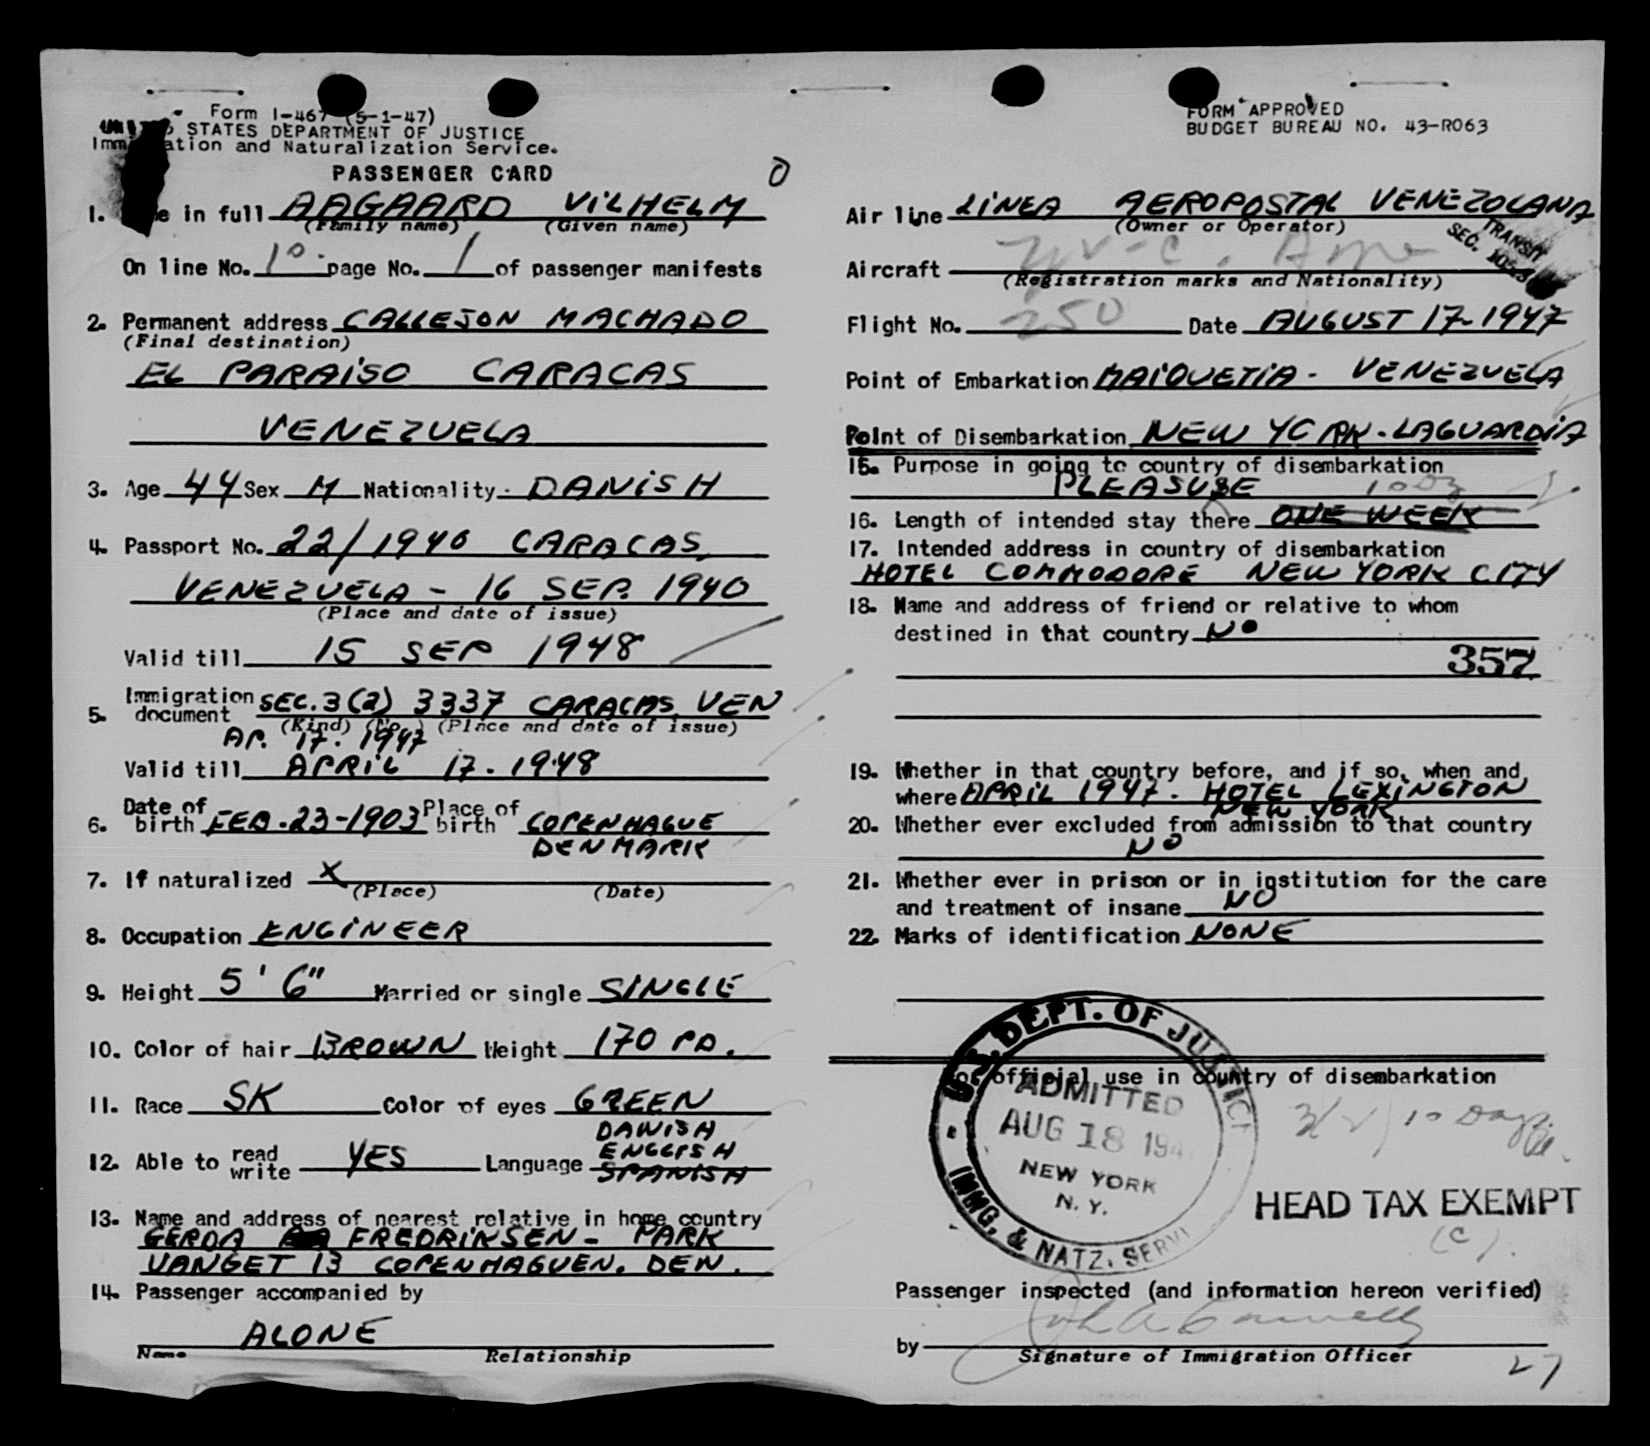 Form I-467 (5-1-47)
STATES DEPARTMENT OF JUSTICE
Immigration and Naturalization Service.
PASSENGER CARD
FORM APPROVED
BUDGET BUREAU NO. 43-R063
0
1. in full AAGAARD VILHELM
(Family name) (Given name)
On line No. 10 page No. 1 of passenger manifests
2. Permanent address CALLEJON MACHADO
(Final destination)
EL PARAISO CARACAS
VENEZUELA
3. Age 44 Sex M Nationality DANISH
4. Passport No. 22/1940 CARACAS,
VENEZUELA - 16 SEP. 1940
(Place and date of issue)
Valid till 15 SEP 1948
5. Immigration document SEC. 3(2) 3337 CARACAS, VEN
(Kind) (No.) (Place and date of issue)
AP. 17. 1947
Valid till APRIL 17. 1948
6. Date of birth FEB. 23-1903 Place of birth COPENHAGUE
DENMARK
7. If naturalized X
(Place) (Date)
8. Occupation ENGINEER
9. Height 5' 6" Married or single SINGLE
10. Color of hair BROWN Weight 170 PD.
11. Race SK Color of eyes GREEN
12. Able to read write YES Language DANISH
ENGLISH
SPANISH
13. Name and address of nearest relative in home country
GERDA FREDRIKSEN - PARK
VANGET 13 COPENHAGUEN. DEN.
14. Passenger accompanied by
ALONE
Name Relationship
Air line LINEA AEROPOSTAL VENEZOLANA
(Owner or Operator)
TRANSIT
SEC.
Aircraft YV-C
(Registration marks and Nationality)
Flight No. 250 Date AUGUST 17-1947
Point of Embarkation MAIQUETIA - VENEZUELA
Point of Disembarkation NEW YORK - LAGUARDIA
15. Purpose in going to country of disembarkation
PLEASURE
16. Length of intended stay there ONE WEEK
17. Intended address in country of disembarkation
HOTEL COMMODORE NEW YORK CITY
18. Name and address of friend or relative to whom
destined in that country NO
357
19. Whether in that country before, and if so, when and
where APRIL 1947. HOTEL LEXINGTON
NEW YORK
20. Whether ever excluded from admission to that country
NO
21. Whether ever in prison or in institution for the care
and treatment of insane NO
22. Marks of identification NONE
For official use in country of disembarkation
U.S. DEPT. OF JUSTICE
ADMITTED
AUG 18 194
NEW YORK
N. Y.
IMMG. & NATZ. SERV.
3(2) 10 Days
HEAD TAX EXEMPT
(C).
Passenger inspected (and information hereon verified)
by
Signature of Immigration Officer
27